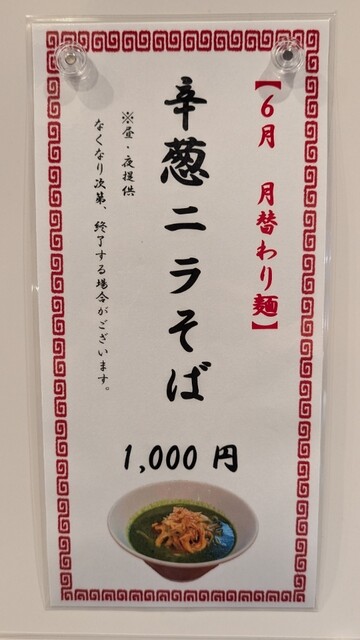 【６月　月替わり麺】
辛葱ニラそば
※昼・夜提供
なくなり次第、終了する場合がございます。
1,000 円